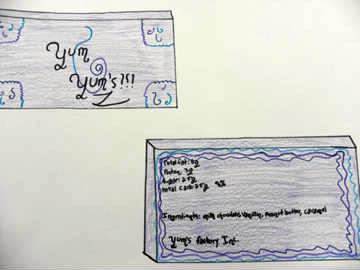 Yum
Yum's?!!
Total fat: 8g
Sugar: 25g
Total Carb: 25g 9%
Ingredients: milk chocolate, vanilla, peanut butter, caramel
Yum's factory Inc.